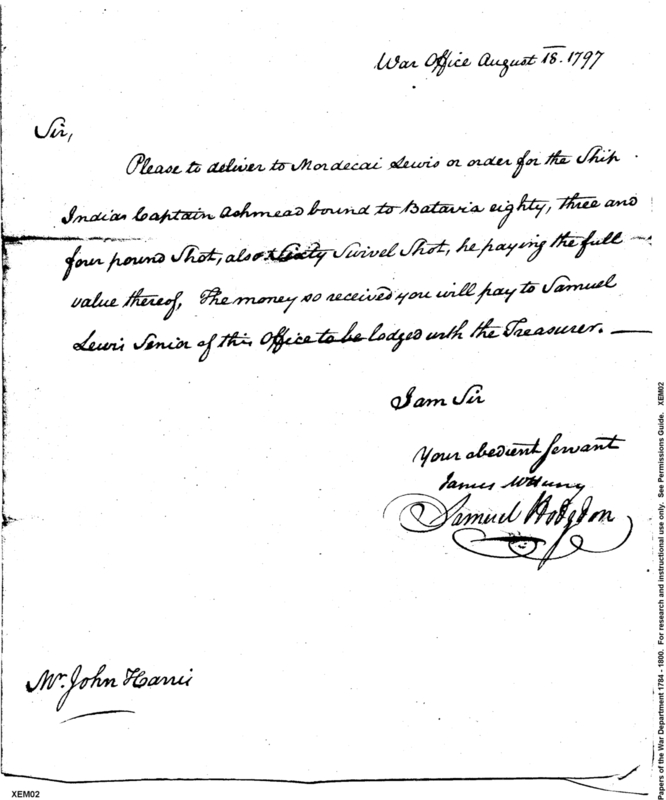 War Office August 18. 1797
Sir,
Please to deliver to Mordecai Lewis or order for the Ship
Indias Captain Ashmead bound to Batavia eighty, three and
four pound Shot, also Sixty Swivel Shot, he paying the full
value thereof, The money so received you will pay to Samuel
Lewis Senior of this Office to be lodged with the Treasurer. —
I am Sir
Your obedient Servant
James McHenry
Samuel Hodgdon
Mr. John Harris
XEM02
Papers of the War Department 1784 - 1800. For research and instructional use only. See Permissions Guide. XEM02